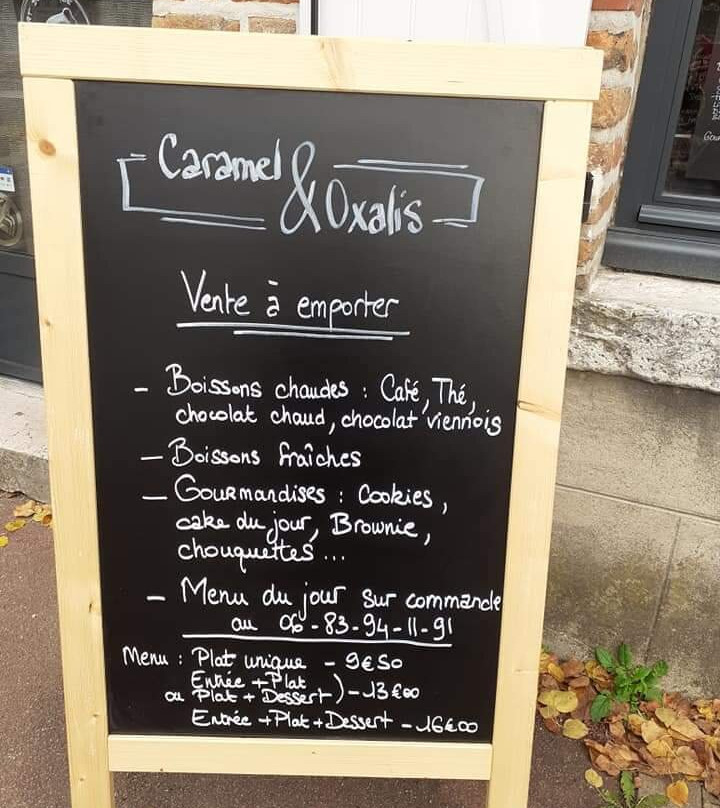 Caramel
& Oxalis
Vente à emporter
- Boissons chaudes : Café, Thé,
chocolat chaud, chocolat viennois
- Boissons fraîches
- Gourmandises : Cookies,
cake du jour, Brownie,
chouquettes...
- Menu du jour sur commande
au 06-83-94-11-91
Menu : Plat unique - 9€50
Entrée + Plat
ou Plat + Dessert ) - 13€00
Entrée + Plat + Dessert - 16€00